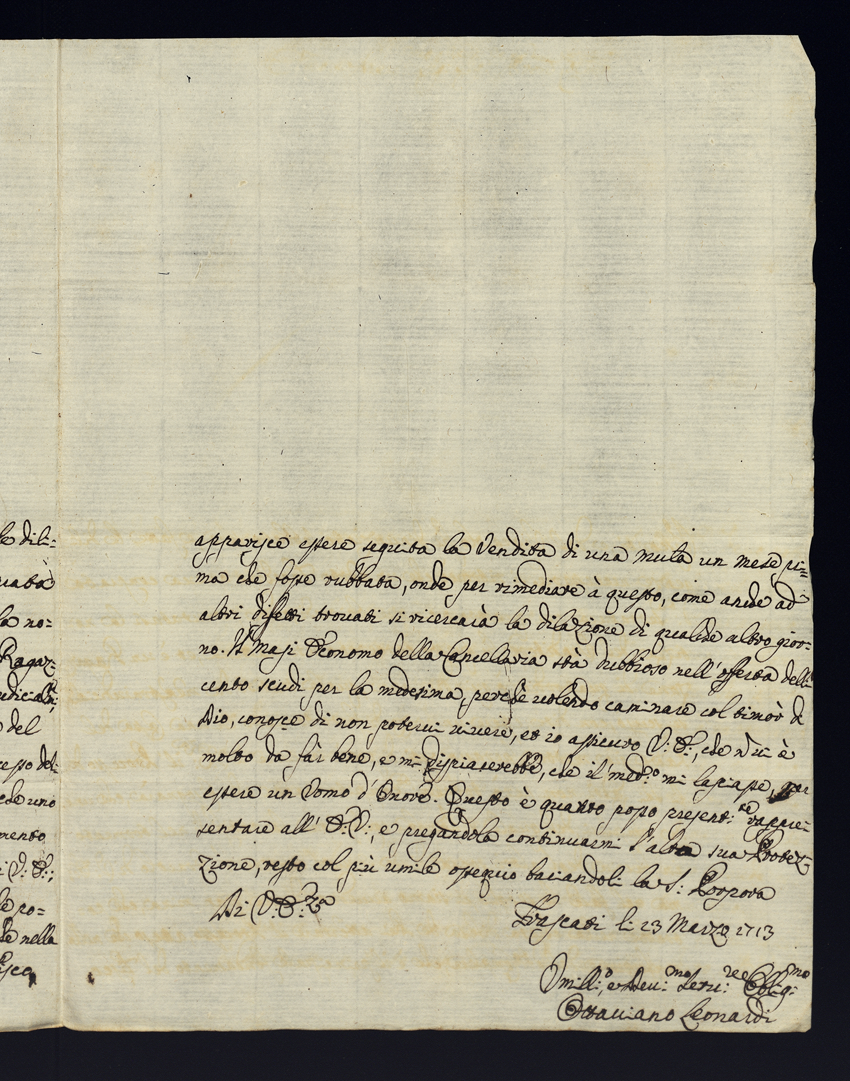 le dili=
la no=
Ragaz=
del
ese uno
mento
le po=
nella
apparisce essere seguita la Vendita di una muta un mese pi=
ma che fosse rubbata, onde per rimediare à questo, come anche ad
altri difetti trovati si ricercarà la dilazione di qualche altro gior=
no. Il Masi Economo della Cancellaria stà dubbioso nell'offerta delli
cento scudi per la medesima, perche volendo caminare col timòr di
Dio, conosce di non potervi vivere, et io assicuro V: E:, che vi è
molto da fàr bene, e mi dispiacerebbe, che il med:o mi lasciasse, per
essere un Vomo d'Onore. Questo è quanto posso present:te rappre=
sentare all' E: V:, e pregandola continuarmi l'alta sua Protez=
zione, resto col più umile ossequio baciandoli la S: Porpora
Di V: E:za
Frascati li 23 Marzo 1713
Vmill:o, e Deu:mo Seru:re Oblig:mo
Ottaviano Leonardi